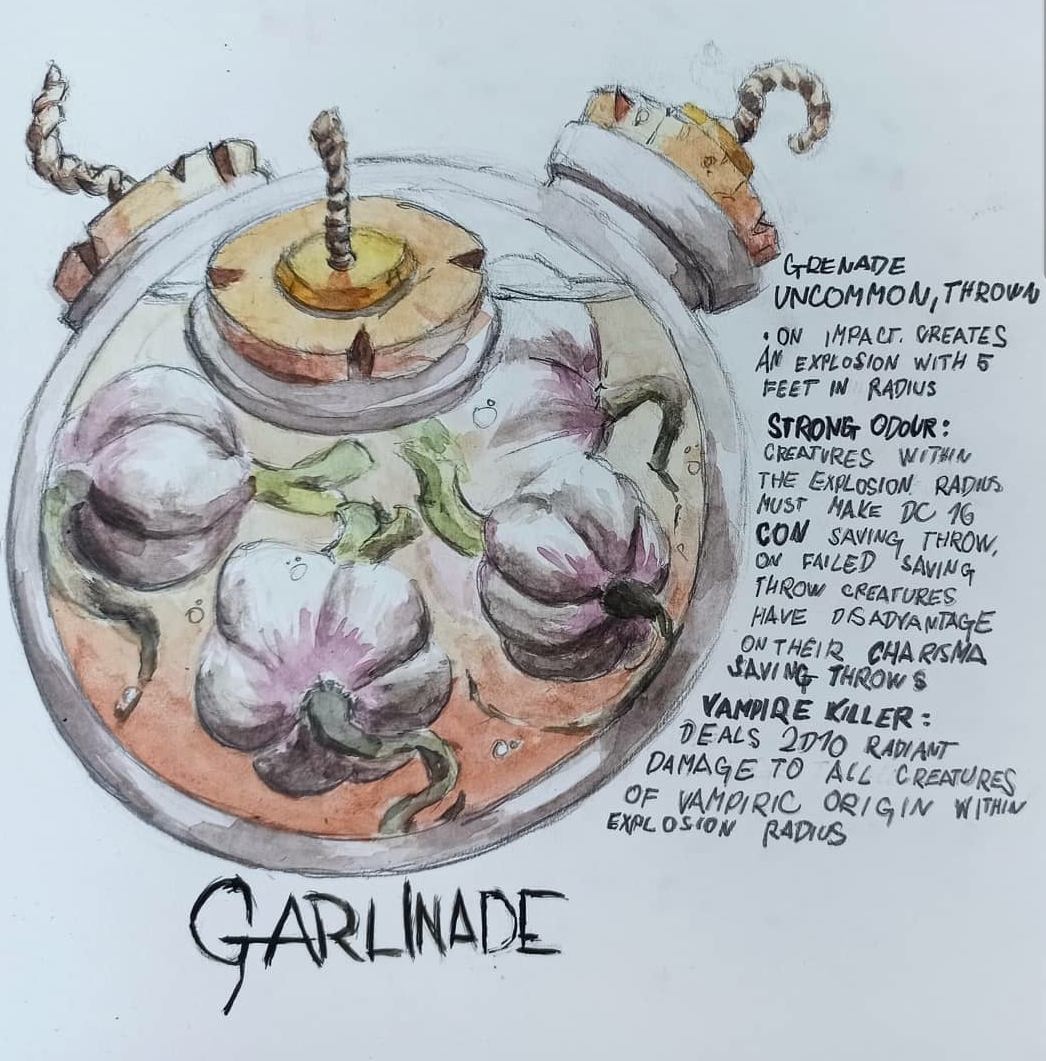 GRENADE
UNCOMMON, THROWN
• ON IMPACT. CREATES
AN EXPLOSION WITH 5
FEET IN RADIUS
STRONG ODOUR:
CREATURES WITHIN
THE EXPLOSION RADIUS
MUST MAKE DC 16
CON SAVING THROW,
ON FAILED SAVING
THROW CREATURES
HAVE DISADVANTAGE
ON THEIR CHARISMA
SAVING THROWS
VAMPIRE KILLER:
DEALS 2D10 RADIANT
DAMAGE TO ALL CREATURES
OF VAMPIRIC ORIGIN WITHIN
EXPLOSION RADIUS
GARLINADE